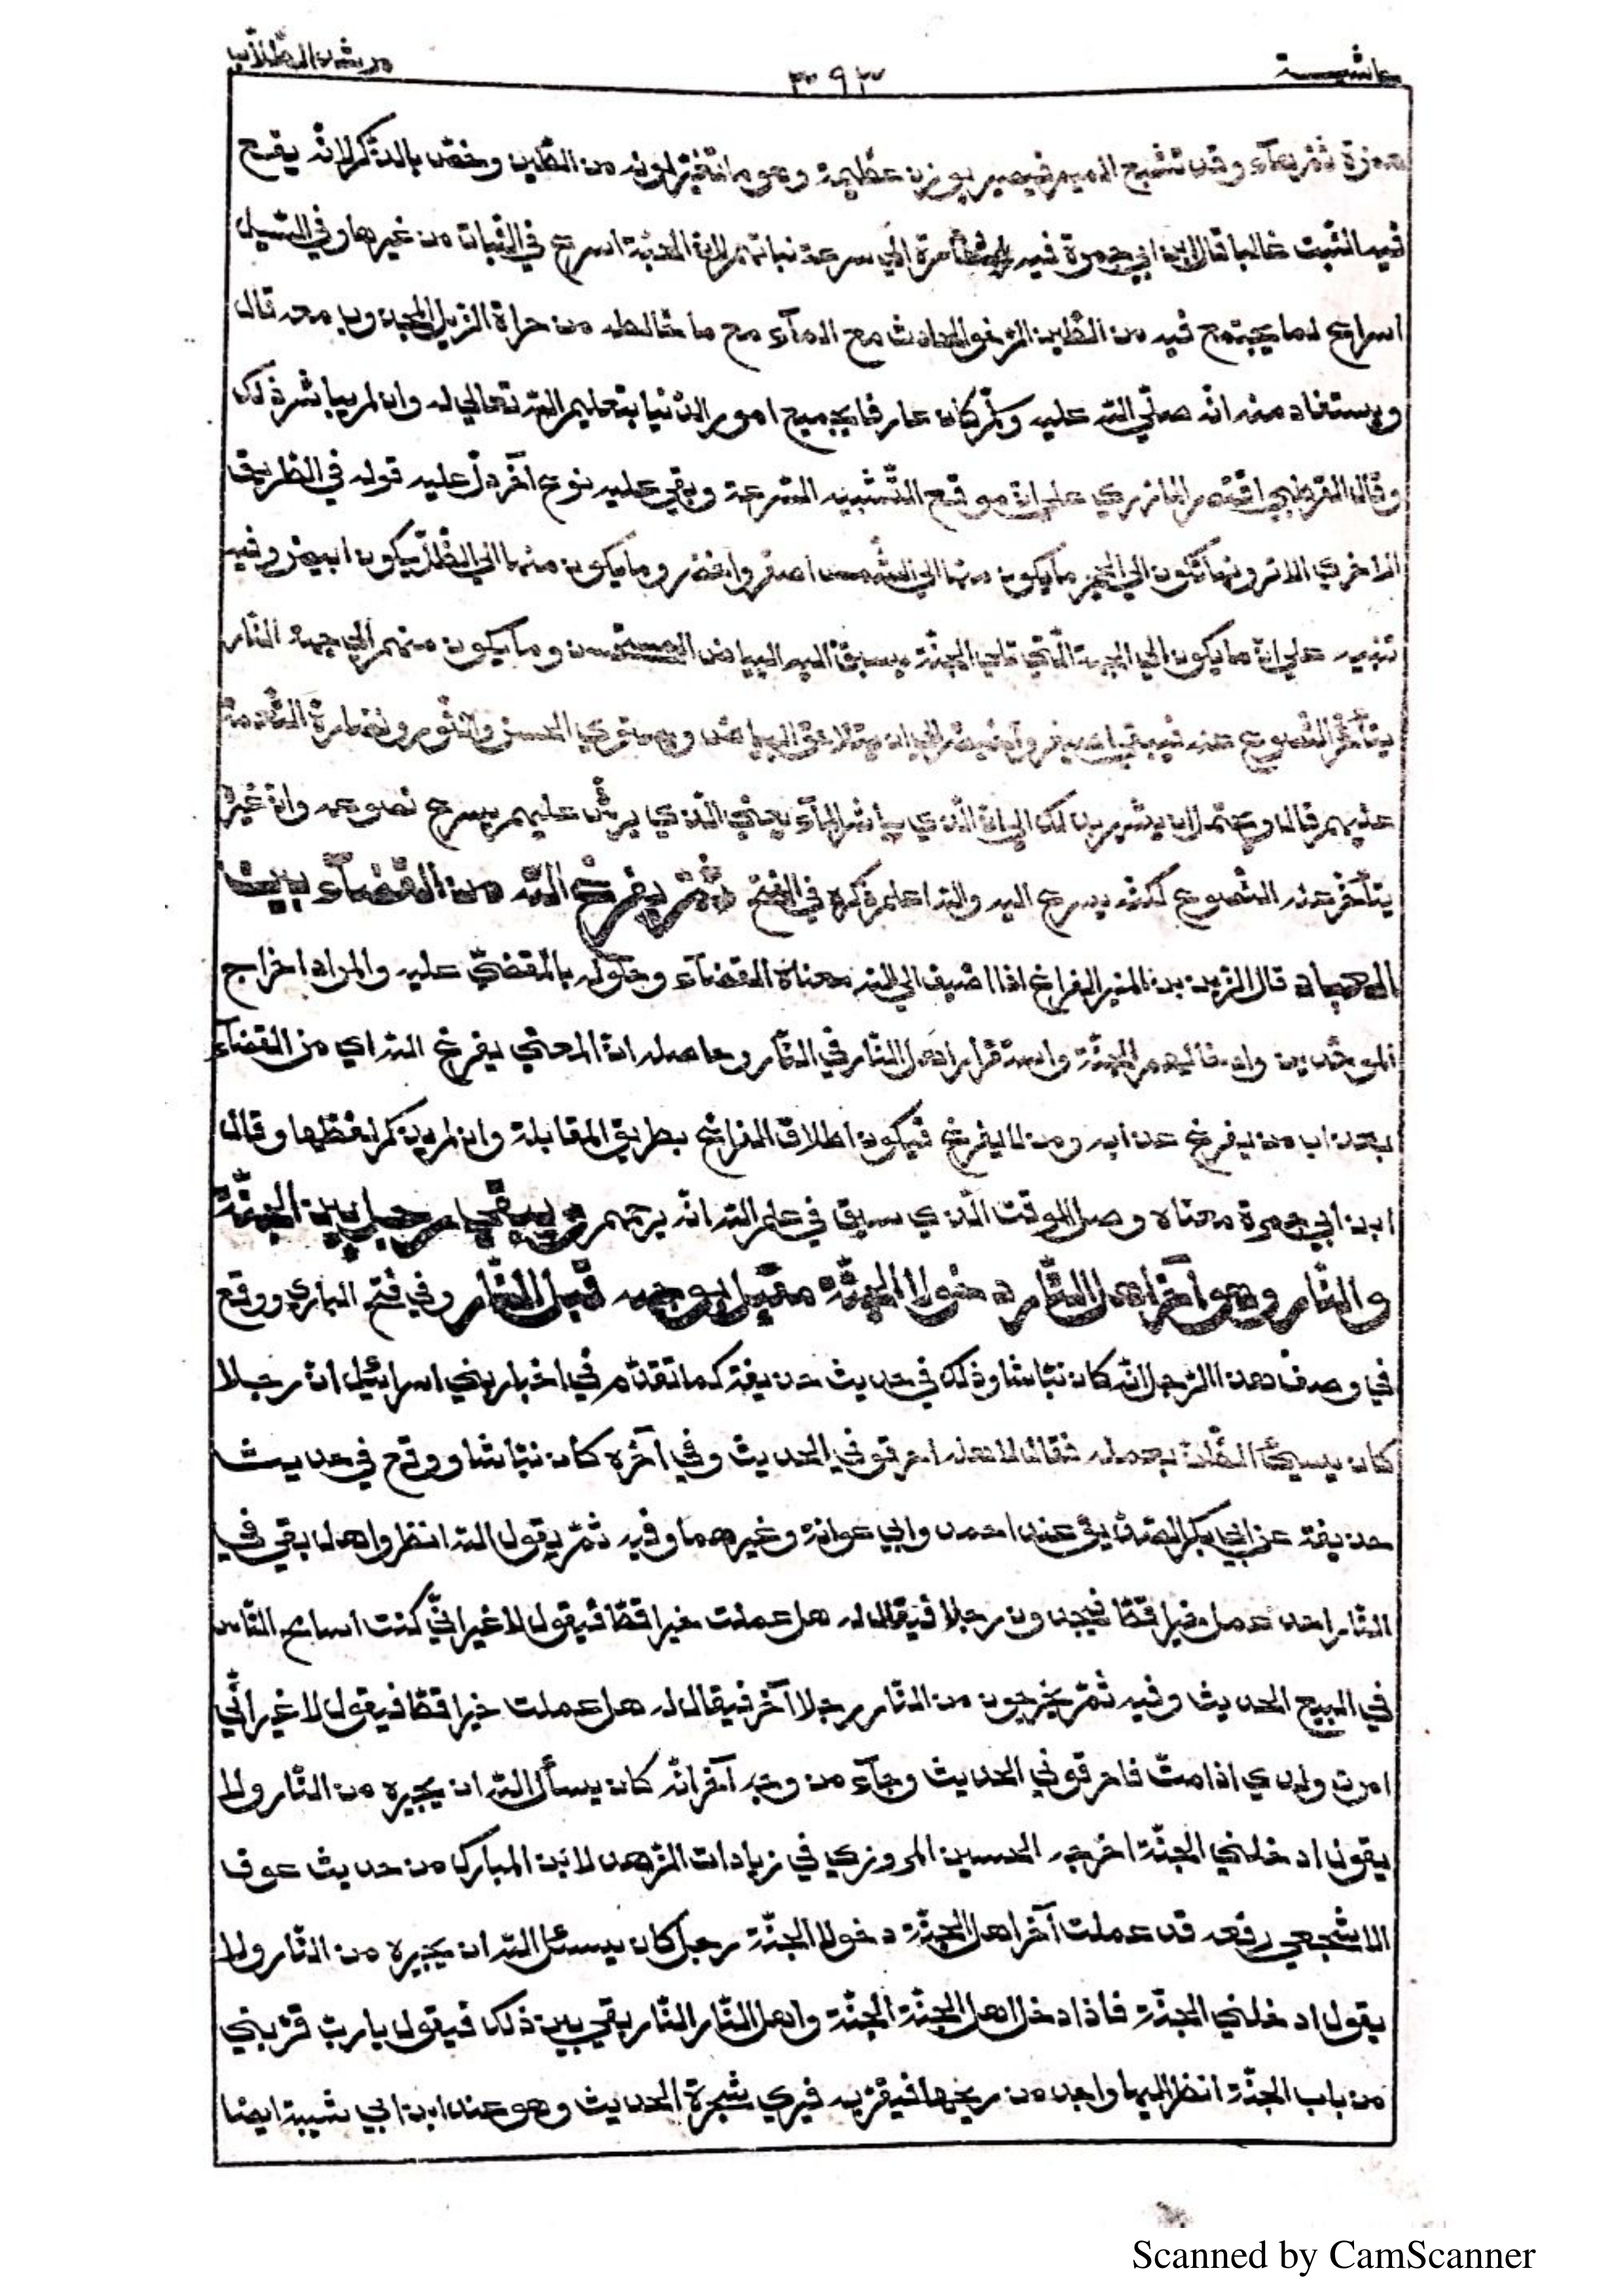 حاشية ٣٩٣ مرشد الطلاب
همزة ثم هاء وقد تشبع الميم فيصير بوزن عظيمة وهو ما تغير لونه من الطين وخص بالذكر لانه يقع
فيه النبت غالبا قال ابن ابي جمرة فيه اشارة الى سرعة نباتهم لان الحبة اسرع في النبات من غيرها وفي السيل
اسرع لما يجتمع فيه من الطين الرخو الحادث مع الماء مع ما خالطه من حرارة الزبل المجذوب معه قال
ويستفاد منه انه صلى الله عليه وسلم كان عارفا بجميع امور الدنيا بتعليم الله تعالى له وان لم يباشر ذلك
وقال القرطبي اقتصر المازري على ان موقع التشبيه السرعة وبقي عليه نوع آخر دل عليه قوله في الطريق
الاخرى الا ترونها تكون الى الحجر ما يكون منها الى الشمس اصفر واخضر وما يكون منها الى الظل يكون ابيض وفيه
تنبيه على ان ما يكون الى الجهة التي تلي الجنة يسبق اليه البياض المستحسن وما يكون منهم الى جهة النار
يتأخر النصوع عنه فيبقى اصيفر وأخيضر الى ان يتلاحق البياض ويستوي الحسن والنور ونضارة النعمة
عليهم قال ويحتمل ان يشير بذلك الى ان الذي يباشر الماء يعني الذي يرش عليهم يسرع نصوعه وان غيره
يتأخر عنه النصوع لكنه يسرع اليه والله اعلم ذكره في الفتح ثم يفرغ الله من القضاء بين
العباد قال الزين بن المنير الفراغ اذا اضيف الى الله معناه القضاء وحلوله بالمقضي عليه والمراد اخراج
الموحدين وادخالهم الجنة واستقرار اهل النار في النار وحاصله ان المعنى يفرغ الله اي من القضاء
بعذاب من يفرغ عذابه ومن لا يفرغ فيكون اطلاق الفراغ بطريق المقابلة وان لم يذكر لفظها وقال
ابن ابي جمرة معناه وصل الوقت الذي سبق في علم الله انه يرحمهم ويبقى رجل بين الجنة
والنار وهو آخر اهل النار دخولا الجنة مقبل بوجهه قبل النار وفي فتح الباري ووقع
في وصف هذا الرجل انه كان نباشا وذلك في حديث حذيفة كما تقدم في اخبار بني اسرائيل ان رجلا
كان يسيئ الظن بعمله فقال لاهله احرقوني الحديث وفي آخره كان نباشا ووقع في حديث
حذيفة عن ابي بكر الصديق عند احمد وابي عوانة وغيرهما وفيه ثم يقول الله انظروا هل بقي في
النار احد عمل خيرا قط فيجدون رجلا فيقال له هل عملت خيرا قط فيقول لا غير اني كنت اسامح الناس
في البيع الحديث وفيه ثم يخرجون من النار رجلا آخر فيقال له هل عملت خيرا قط فيقول لا غير اني
امرت ولدي اذا مت فاحرقوني الحديث وجاء من وجه آخر انه كان يسأل الله ان يجيره من النار ولا
يقول ادخلني الجنة اخرجه الحسين المروزي في زيادات الزهد لابن المبارك من حديث عوف
الاشجعي رفعه قد عملت آخر اهل الجنة دخولا الجنة رجل كان يسئل الله ان يجيره من النار ولا
يقول ادخلني الجنة فاذا دخل اهل الجنة الجنة واهل النار النار بقي بين ذلك فيقول يا رب قربني
من باب الجنة انظر اليها واجد من ريحها فيقربه فيرى شجرة الحديث وهو عند ابن ابي شيبة ايضا
Scanned by CamScanner